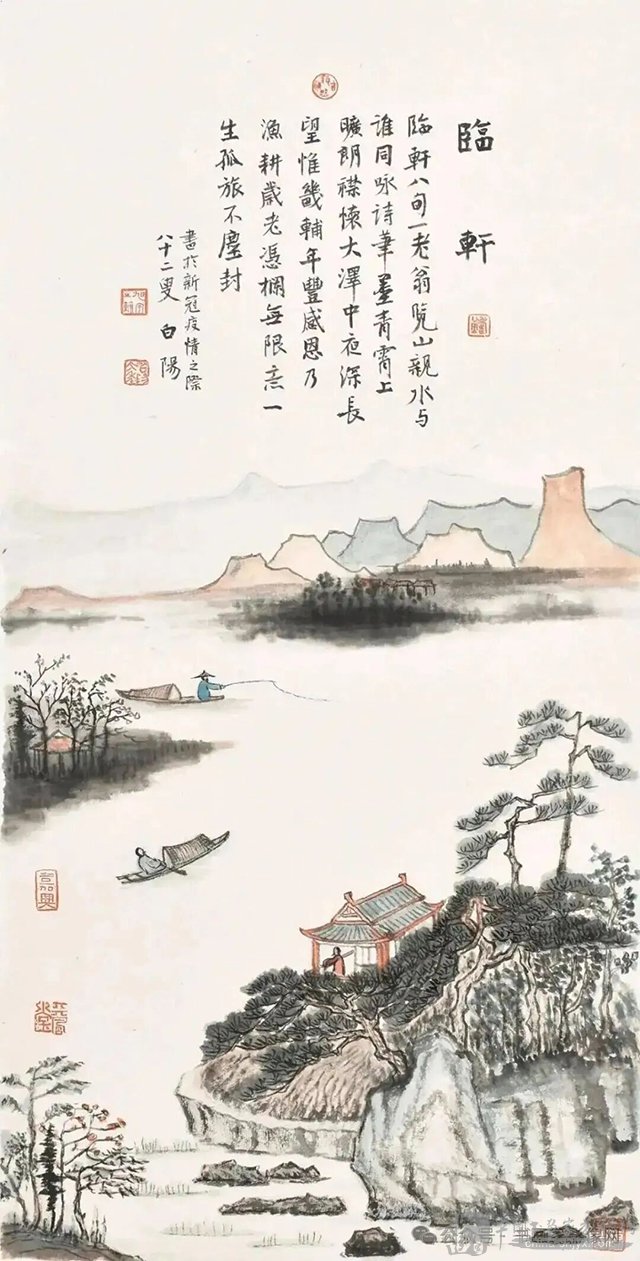 臨軒
臨軒八句一老翁覽山親水与
誰同咏詩筆墨青霄上
曠朗襟懷大澤中夜深長
望惟畿輔年豐感恩乃
漁耕歲老憑欄無限意一
生孤旅不塵封
書於新冠疫情之際
八十二叟 白陽